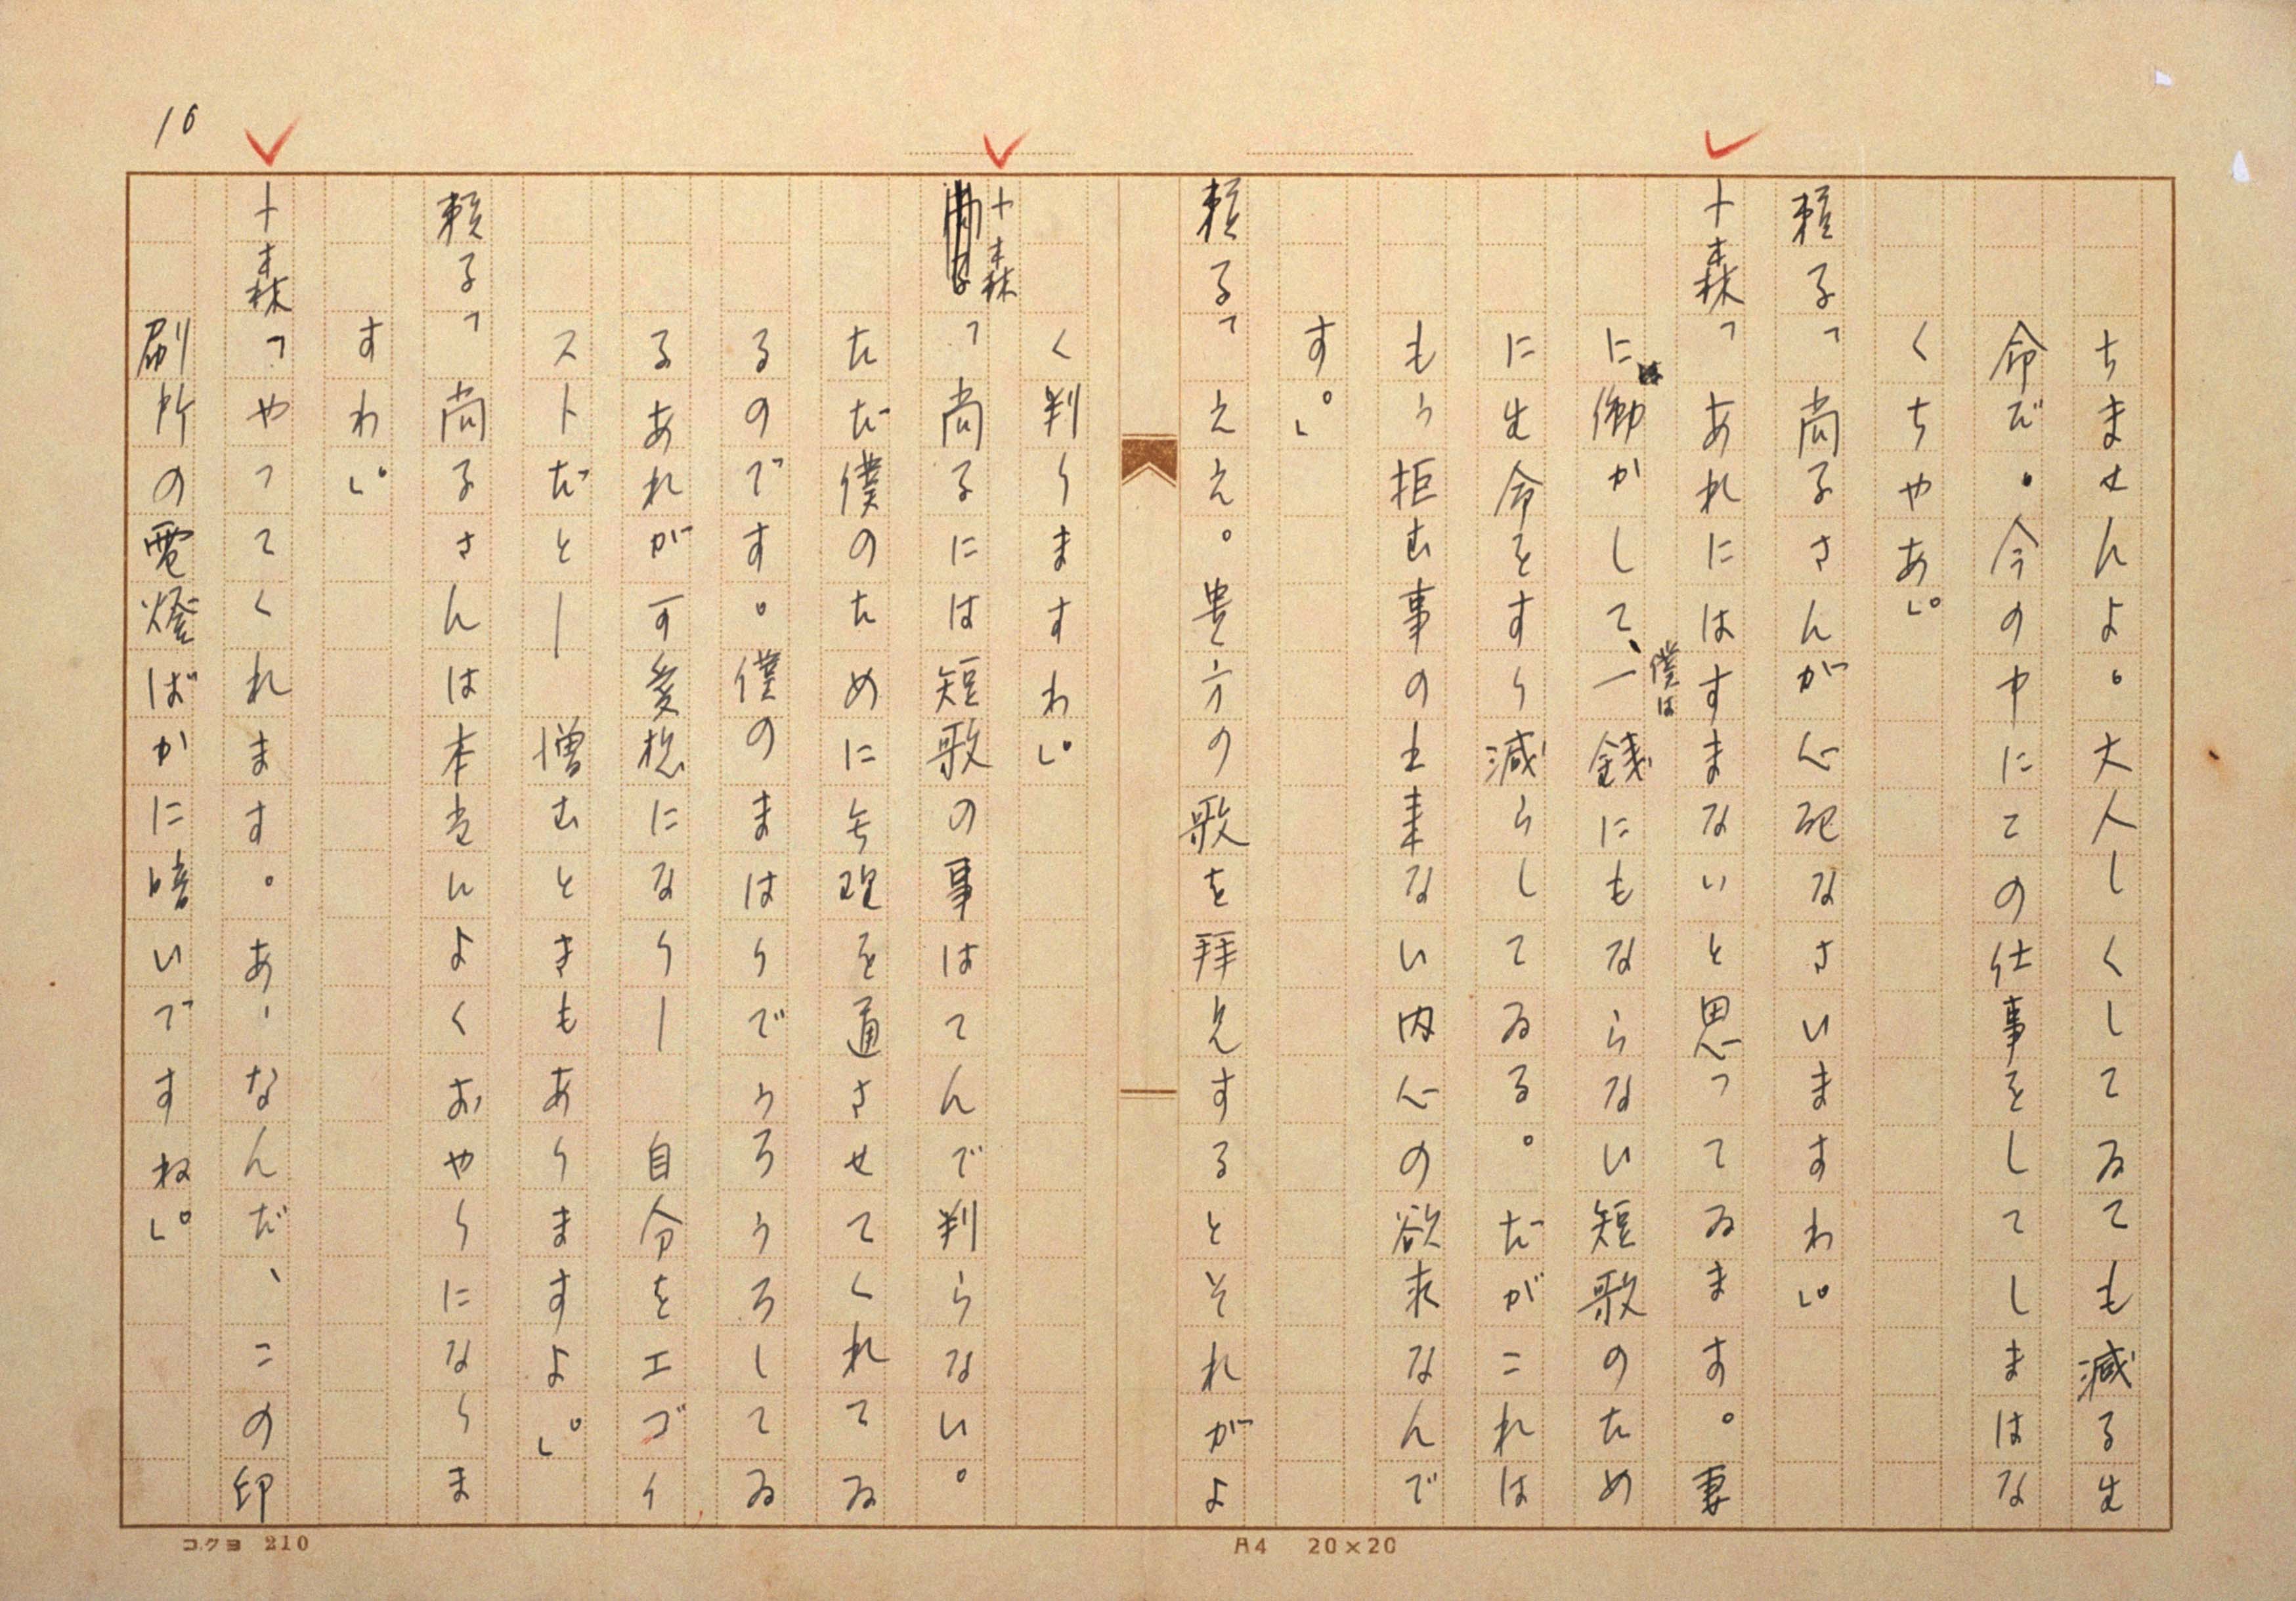 ちませんよ。大人しくしてゐても減る生
命だ。今の中にこの仕事をしてしまはな
くちやあ。」
頼子「尚子さんが心配なさいますわ。」
十森「あれにはすまないと思ってゐます。妻
に働かして、僕は一銭にもならない短歌のため
に生命をすり減らしてゐる。だがこれは
もう拒む事の出来ない内心の欲求なんで
す。」
頼子「ええ。貴方の歌を拝見するとそれがよ
く判りますわ。」
十森「尚子には短歌の事はてんで判らない。
ただ僕のために無理を通させてくれてゐ
るのです。僕のまはりでうろうろしてゐ
るあれが可愛想になり― 自分をエゴイ
ストだと― 憎むときもありますよ。」
頼子「尚子さんは本当によくおやりになりま
すわ。」
十森「やってくれます。あゝなんだ、この印
刷所の電燈ばかに暗いですね。」
16
コクヨ 210
A4 20×20